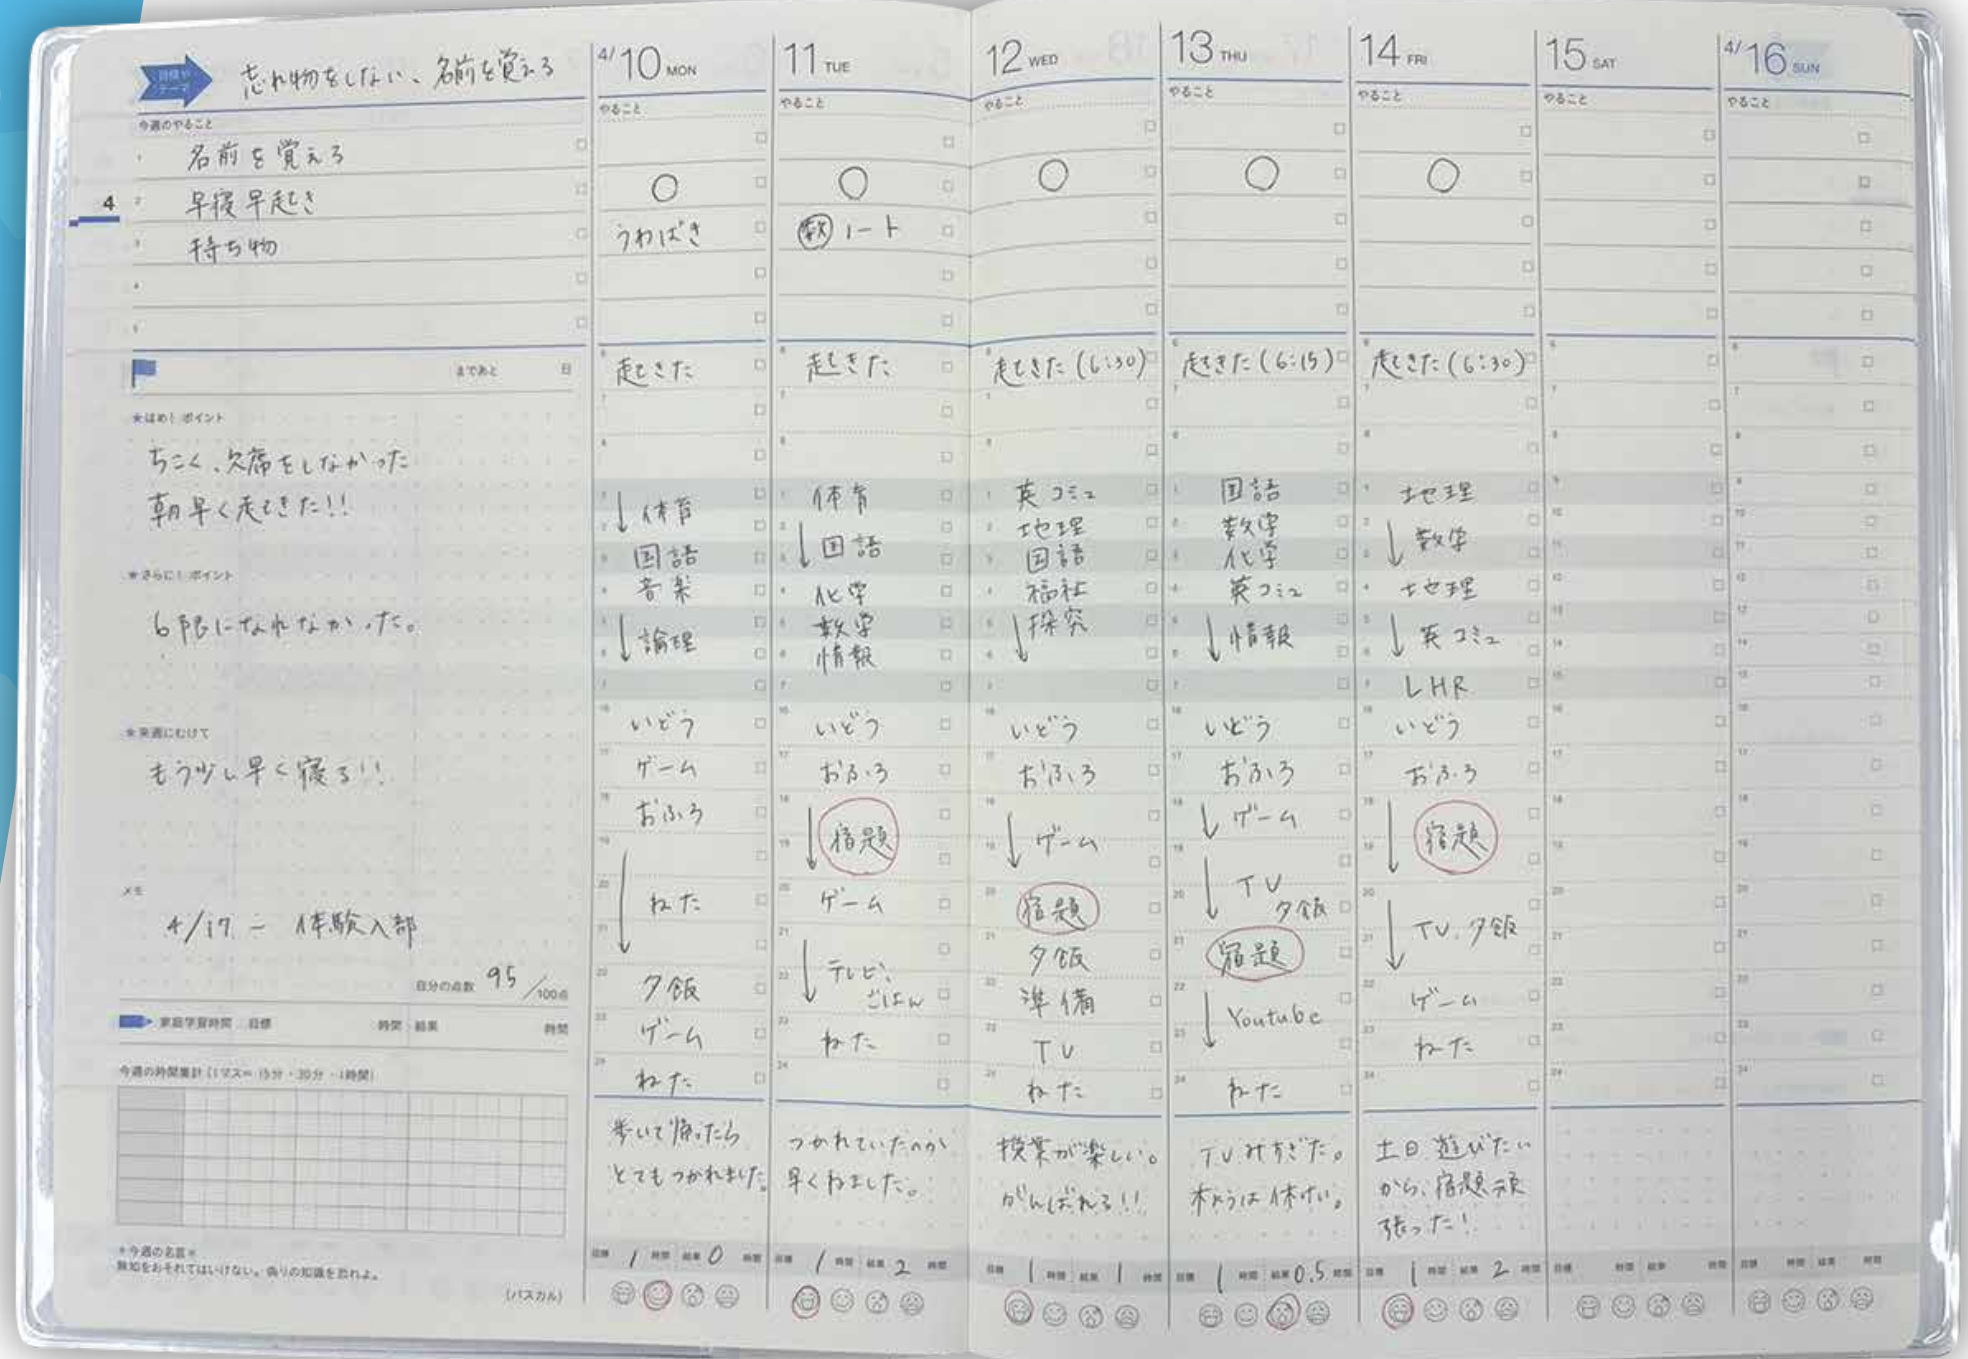 目標や
テーマ
忘れ物をしない、名前を覚える
今週のやること
1 名前を覚える
2 早寝早起き
3 持ち物
4
5
4
まであと 日
★ほめ!ポイント
ちこく、欠席をしなかった
朝早く起きた!!
★さらに!ポイント
6限になれなかった。
★来週にむけて
もう少し早く寝る!!
メモ
4/17 - 体験入部
自分の点数 95/100点
家庭学習時間 目標 時間 結果 時間
今週の時間集計(1マス= 15分・30分・1時間)
★今週の名言★
無知をおそれてはいけない。偽りの知識を恐れよ。
(パスカル)
4/10 MON
やること
○
うわばき
起きた
↓体育
国語
音楽
↓論理
いどう
ゲーム
おふろ
↓ねた
夕飯
ゲーム
ねた
歩いて帰ったら
とてもつかれました。
目標 1 時間 結果 0 時間
11 TUE
やること
○
数ノート
起きた
体育
↓国語
化学
数学
情報
いどう
おふろ
↓宿題
ゲーム
↓テレビ、
ごはん
ねた
つかれていたのか
早くねました。
目標 1 時間 結果 2 時間
12 WED
やること
○
起きた(6:30)
英コミュ
地理
国語
福祉
↓探究
いどう
おふろ
↓ゲーム
宿題
夕飯
準備
TV
ねた
授業が楽しい。
がんばれる!!
目標 1 時間 結果 1 時間
13 THU
やること
○
起きた(6:15)
国語
数学
化学
英コミュ
↓情報
いどう
おふろ
↓ゲーム
↓TV
夕飯
宿題
↓Youtube
ねた
TVみすぎた。
きょうは休けい。
目標 1 時間 結果 0.5 時間
14 FRI
やること
○
起きた(6:30)
地理
↓数学
地理
↓英コミュ
LHR
いどう
おふろ
↓宿題
↓TV、夕飯
ゲーム
ねた
土日遊びたい
から、宿題頑
張った!
目標 1 時間 結果 2 時間
15 SAT
やること
目標 時間 結果 時間
4/16 SUN
やること
目標 時間 結果 時間